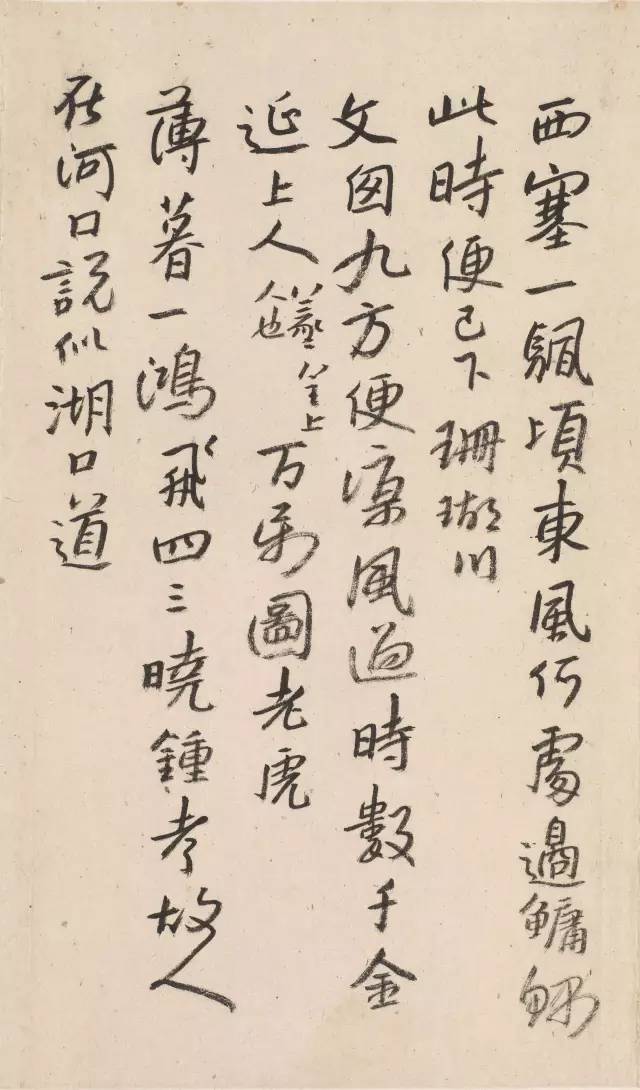 西塞一颿頃東風何處過鱅
此時便已下珊瑚川
文囪九方便涼風過時數千金
延上人 人也 上 万 圖老虎
薄暮一鴻飛四三曉鍾孝故人
在河口説似湖口道